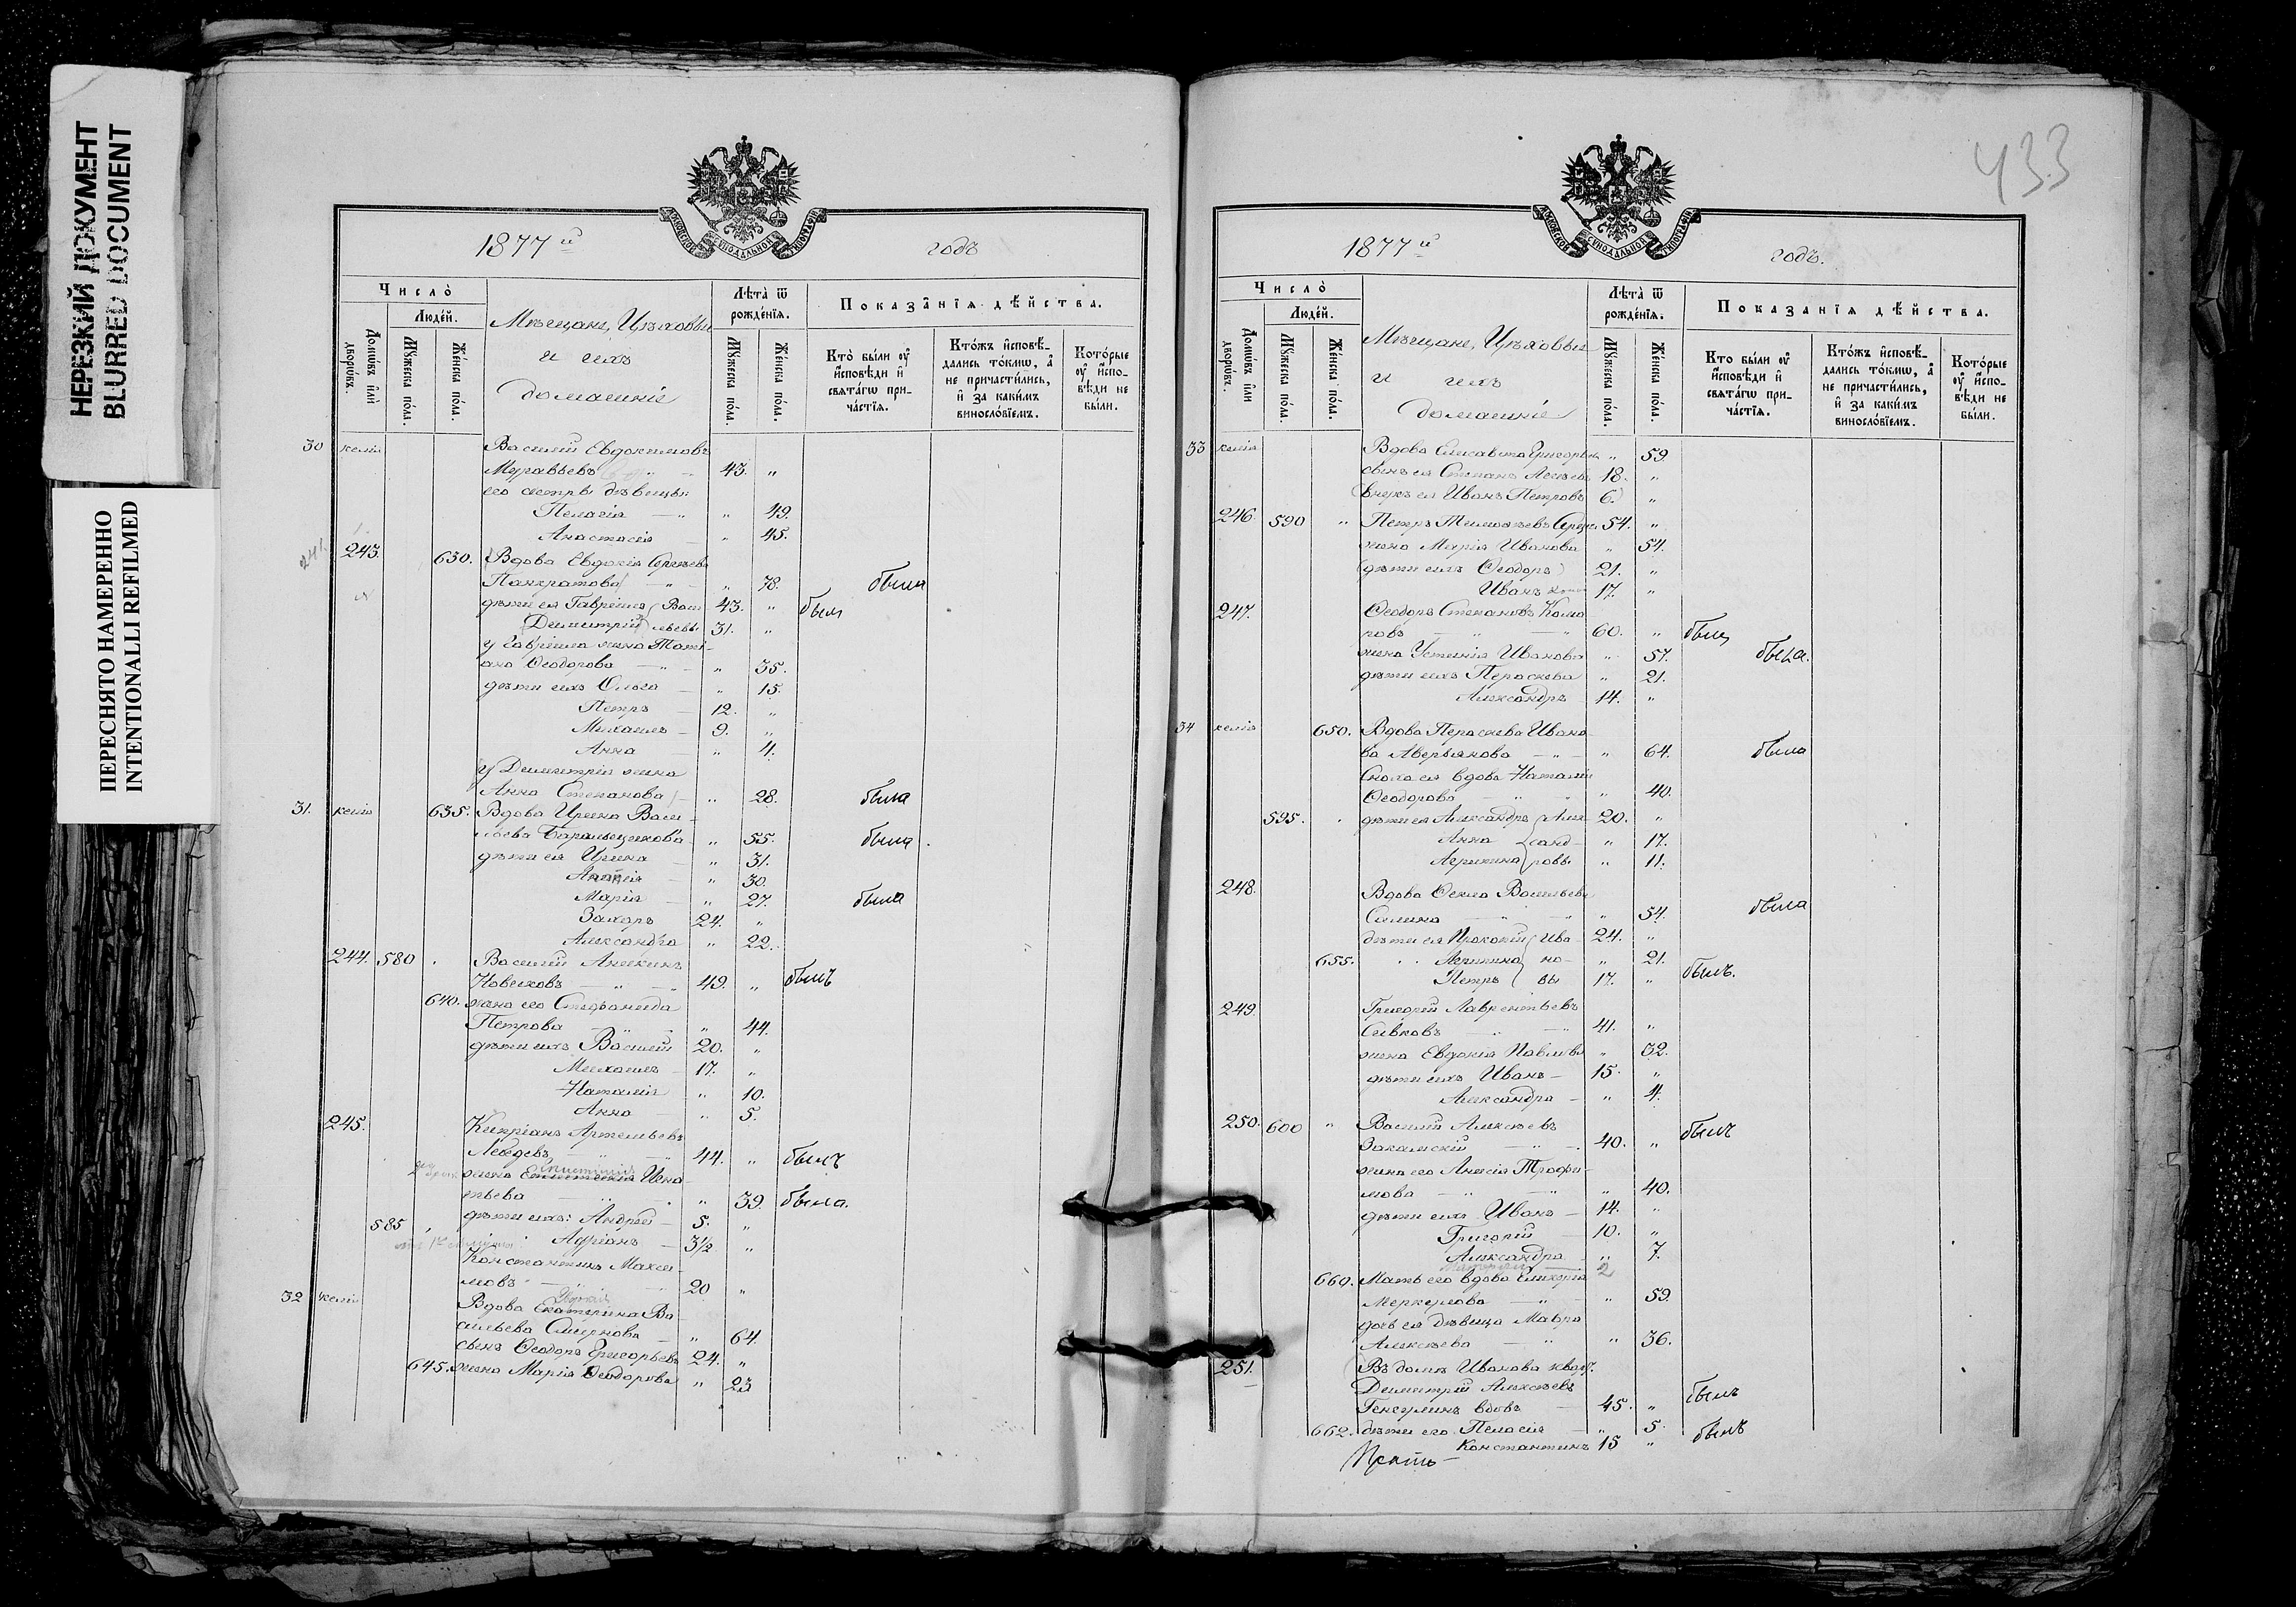 НЕРЕЗКИЙ ДОКУМЕНТ
BLURRED DOCUMENT
ПЕРЕСНЯТО НАМЕРЕННО
INTENTIONALLI REFILMED
МОСКОВСКОЙ СѴНОДАЛЬНОЙ ТИПОГРАФІИ
1877й годъ
Число̀
Люде́й.
Домѡ́въ и҆лѝ дворѡ́въ.
Мꙋ́жеска по́ла.
Же́нска по́ла.
Мѣщане, Цѣховые
и ихъ
домашніе
Лѣта̀ ѿ рожде́нїѧ.
Мꙋ́жеска по́ла.
Же́нска по́ла.
Показа̑нїѧ дѣ́йства.
Кто̀ бы́ли оу҆ и҆сповѣ́ди и҆ свѧта́гѡ при-ча́стїѧ.
Кто́жъ и҆сповѣ́-дались то́кмѡ, а҆ не причасти́лись, и҆ за каки́мъ виносло́вїемъ.
Кото́рые оу҆ и҆спо-вѣ́ди не бы́ли.
30 келія Василій Евдокимовъ
Муравьевъ 43. "
его сестры дѣвицы:
Пелагія — " " 49.
Анастасія — " 45.
241. 243. 630. Вдова Евдокія Сергѣева
Панкратова — " — " 78. была
дѣти ея Гавріилъ Васи 43. " былъ
Димитрій льевы 31. "
у Гавріила жена Тати-
ана Ѳеодорова — " 35.
дѣти ихъ Ольга — " 15.
Петръ — 12. "
Михаилъ — 9. "
Анна — " 4.
у Димитрія жена
Анна Степанова — " 28. была
31. келія 635. Вдова Ирина Васи-
льева Баранщикова " 55. была.
дѣти ея Ирина — " 31.
" 30.
Марія — " 27. была
Захаръ 24. "
Александра " 22.
244. 580 . Василій Аникинъ
Новиковъ — " — " 49. " былъ
640. жена его Стефанида
Петрова " " 44.
дѣти ихъ Василій 20. "
Михаилъ — 17. "
Наталія — " 10.
Анна — " 5.
245. Кипріанъ Артемьевъ
Лебедевъ — " — 44. " былъ
жена Игна-
тьева " 39. была.
585 дѣти ихъ: Андрей — 5. "
Адріанъ — 3½ "
Константинъ Макси-
мовъ 20 "
32 келія Вдова Екатерина Ва-
сильева Смирнова — " 64.
сынъ Ѳеодоръ Григорьевъ 24. "
645. жена Марія Ѳеодорова " 23
433
МОСКОВСКОЙ СѴНОДАЛЬНОЙ ТИПОГРАФІИ
1877й годъ.
Число̀
Люде́й.
Домѡ́въ и҆лѝ дворѡ́въ.
Мꙋ́жеска по́ла.
Же́нска по́ла.
Мѣщане, Цѣховые
и ихъ
домашніе
Лѣта̀ ѿ рожде́нїѧ.
Мꙋ́жеска по́ла.
Же́нска по́ла.
Показа̑нїѧ дѣ́йства.
Кто бы́ли оу҆ и҆сповѣ́ди и҆ свѧта́гѡ при-ча́стїѧ.
Кто́жъ и҆сповѣ́-дались то́кмѡ, а҆ не причасти́лись, и҆ за каки́мъ виносло́вїемъ.
Кото́рые оу҆ и҆спо-вѣ́ди не бы́ли.
33 келія Вдова Елисавета Григорьева " 59.
сынъ ея Степанъ 18. "
внукъ ея Иванъ Петровъ 6. "
246. 590 " Петръ Тимоѳеевъ 54. "
жена Марія Иванова " 54.
(дѣти ихъ Ѳеодоръ) 21. "
Иванъ 17. "
247. Ѳеодоръ Степановъ Кома
ровъ — " — " 60. " былъ
жена Устинія Иванова " 57. была.
дѣти ихъ Параскева " 21.
Александръ 14. "
34 келія 650. Вдова Параскева Ивано
ва Аверьянова — " — " 64. была
Сноха ея вдова Наталія
Ѳеодорова — " " 40.
595. . дѣти ея Александръ Алек 20. "
Анна санд- " 17.
Агрипина ровы " 11.
248. Вдова Ѳекла Васильева
Силина — " — " " 54. была
дѣти ея Прокопій Ива- 24. "
655. Агрипина но- " 21.
Петръ вы 17. " былъ.
249. Григорій Лаврентьевъ
Сивковъ " — " 41. "
жена Евдокія Павлова " 32.
дѣти ихъ Иванъ — 15. "
Александра — " 4.
250. 600 " Василій Алексѣевъ
Закамскій — " — 40. " былъ
жена его Анисія Трофи-
мова — " — " " 40.
дѣти ихъ Иванъ — 14. "
Григорій — 10. "
Александра " 7.
2
660. Мать его вдова Гликерія
Меркулова — " — " 59.
дочь ея дѣвица Мавра
Алексѣева — " " 36.
251. Въ домѣ Иванова кварт.
Димитрій Алексѣевъ
вдовъ — 45. " былъ
662. дѣти его Пелагія — " 5.
Константинъ 15 " былъ